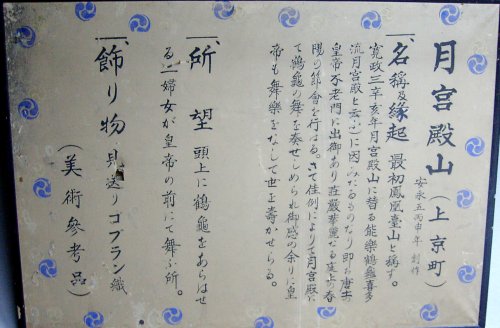 月宮殿山（上京町）
安永五丙申年 創作
一、名稱及縁起 最初鳳凰臺山と稱す。
寛政三辛亥年月宮殿山に替る能樂鶴龜喜多
流月宮殿と云ふに因みたるものなり即ち唐土
皇帝不老門に出御あり荘嚴華麗だる庭上の春
陽の節會を行はる。さて佳例によりて月宮殿に
て鶴龜の舞を奏せしめられ御感の余りに皇
帝も舞樂をなして世を壽かせらる。
一、所望 頭上に鶴龜をあらはせ
る一婦女が皇帝の前にて舞ふ所。
一、飾り物 見送りゴブラン織
（美術參考品）